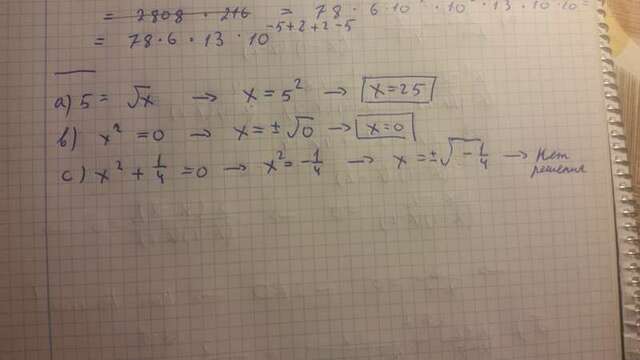 = 2808 · 216 = 78 · 6 · 10 · 10 · 13 · 10 · 10
= 78 · 6 · 13 · 10^-5+2+2-5
a) 5 = √x → x = 5² → x = 25
b) x² = 0 → x = ±√0 → x = 0
c) x² + 1/4 = 0 → x² = -1/4 → x = ±√-1/4 → Нет
решения